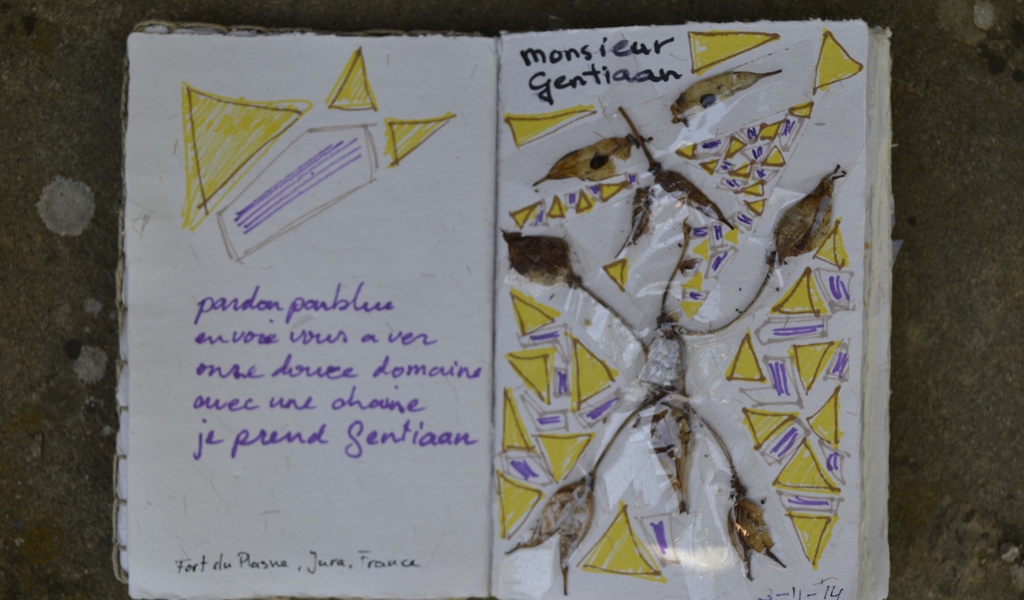 pardon parbleu
envoie vous a ver
onze douce domaine
avec une chaine
je prend Gentiaan
Fort du Plasne, Jura, France
monsieur
Gentiaan
3-11-14